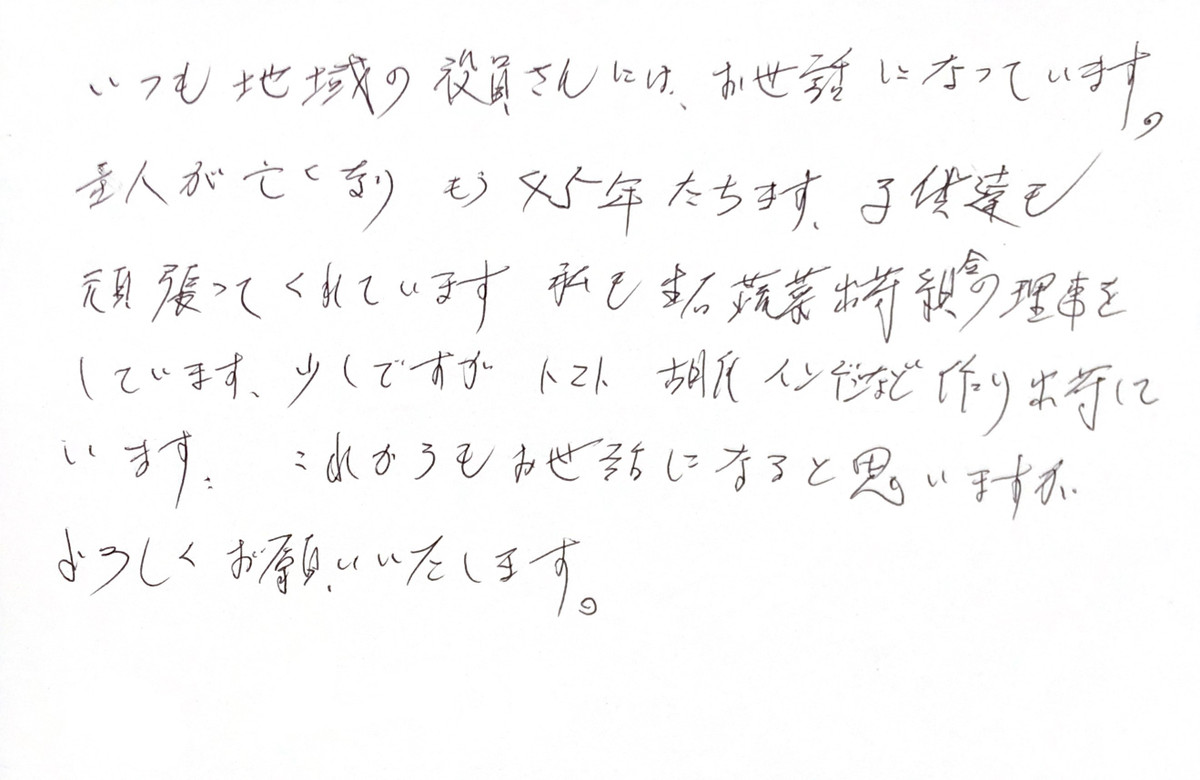 いつも地域の役員さんには、お世話になっています。
主人が亡くなり もう 年たちます、子供達も
頑張ってくれています 私も生石蔬菜出荷組合の理事を
しています、少しですが トマト 胡瓜 インゲンなど作り出荷して
います。 これからもお世話になると思いますが、
よろしくお願いいたします。